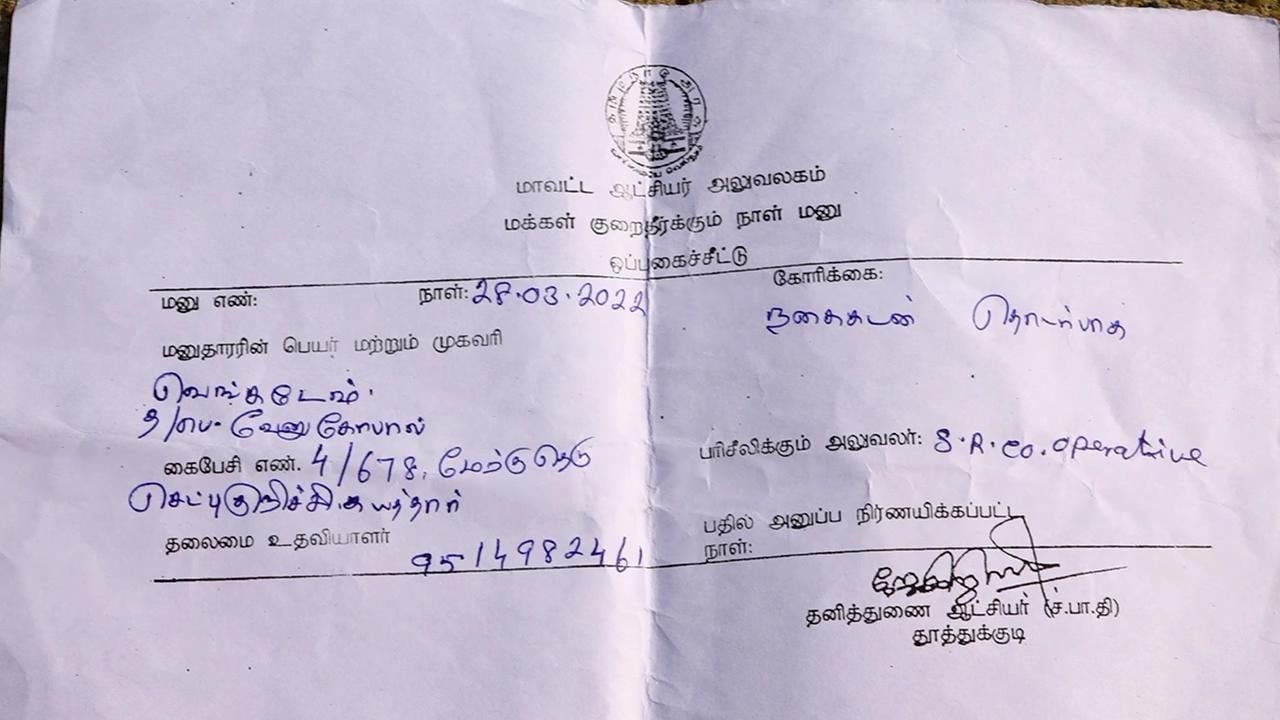 தமிழ்நாடு அரசு
மாவட்ட ஆட்சியர் அலுவலகம்
மக்கள் குறைதீர்க்கும் நாள் மனு
ஒப்புகைச்சீட்டு
மனு எண்: நாள்: 28.03.2022
மனுதாரரின் பெயர் மற்றும் முகவரி
வெங்கடேஷ்.
த/பெ. வேணுகோபால்
கைபேசி எண். 4/678, மேற்குதெரு
செட்டிகுறிச்சி. கயத்தார்
தலைமை உதவியாளர் 9514982461
கோரிக்கை:
நகைகடன் தொடர்பாக
பரிசீலிக்கும் அலுவலர்: S.R.co.operative
பதில் அனுப்ப நிர்ணயிக்கப்பட்ட
நாள்:
தனித்துணை ஆட்சியர் (ச.பா.தி)
தூத்துக்குடி